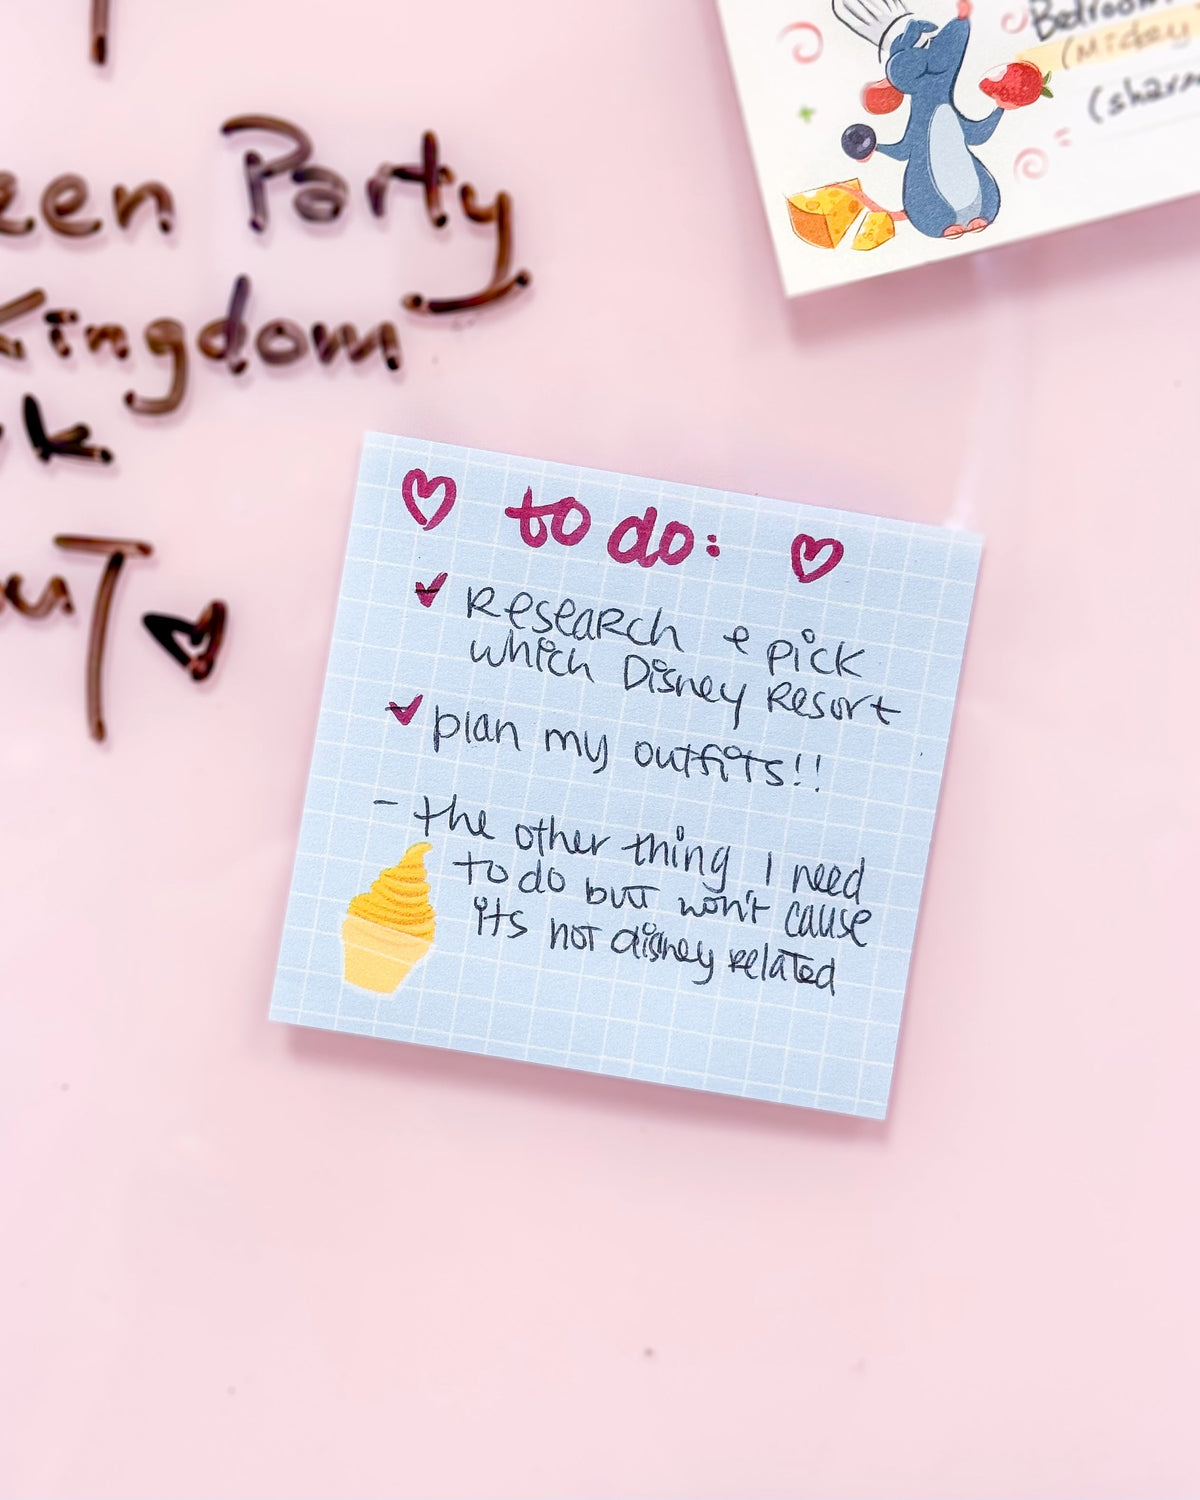 een Party
Kingdom
k
Bedroom
(Mickey
♡ to do: ♡
✓ Research & pick
which Disney Resort
✓ plan my outfits!!
- the other thing I need
to do but won't cause
its not disney related